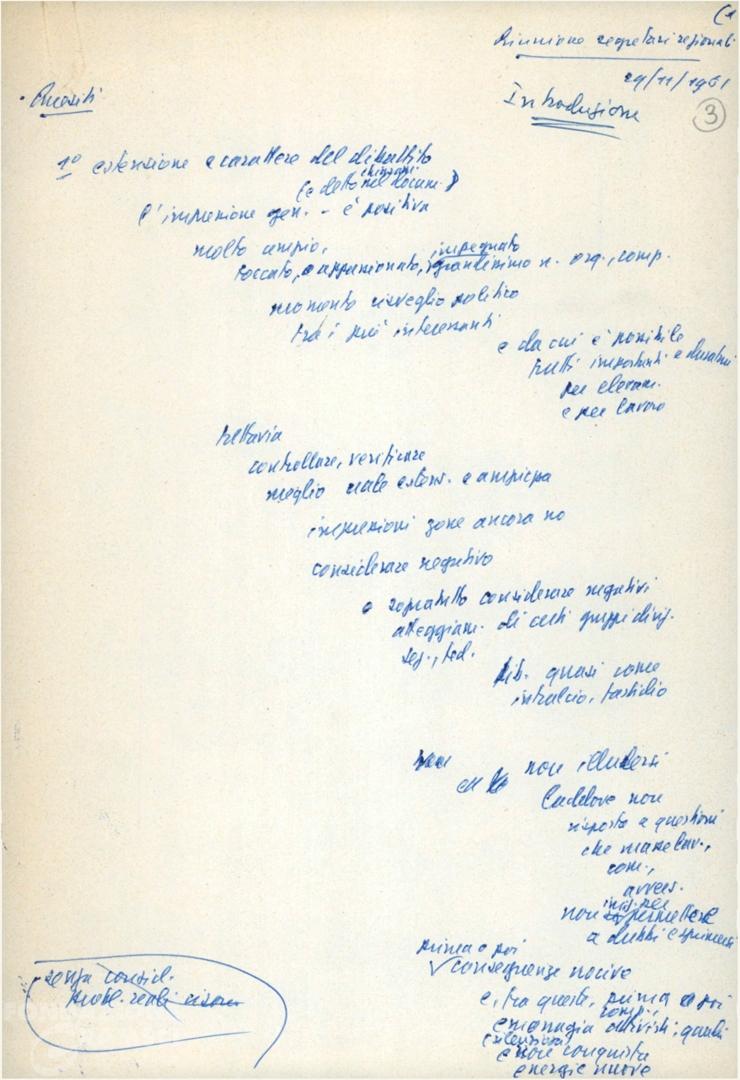 (1
Riunione segretari regionali
29/11/1961
• Quesiti
Introduzione
3
1° estensione e carattere del dibattito
(e detto nel docum.)
L'impressione gen. - è positiva
molto ampio,
impegnato
toccato, appassionato, grandissimo n. org., comp.
momento risveglio politico
tra i più interessanti
e da cui è possibile
frutti importanti e duraturi
per elevam.
e per lavoro
tuttavia
controllare, verificare
meglio reale estens. e ampiezza
impressioni zone ancora no
considerare negativo
e sopratutto considerare negativi
atteggiam. di certi gruppi dirig.
sez., fed.
dib. quasi come
intralcio, fastidio
non illudersi
laddove non
risposta a questioni
che masse lav.,
com.,
avvers.
non permettere
a dubbi esprimersi
prima o poi
conseguenze nocive
e, tra queste, prima o poi
comp.,
emorragia attivisti, quadri
e non conquista
energie nuove
senza consid.
probl. reali